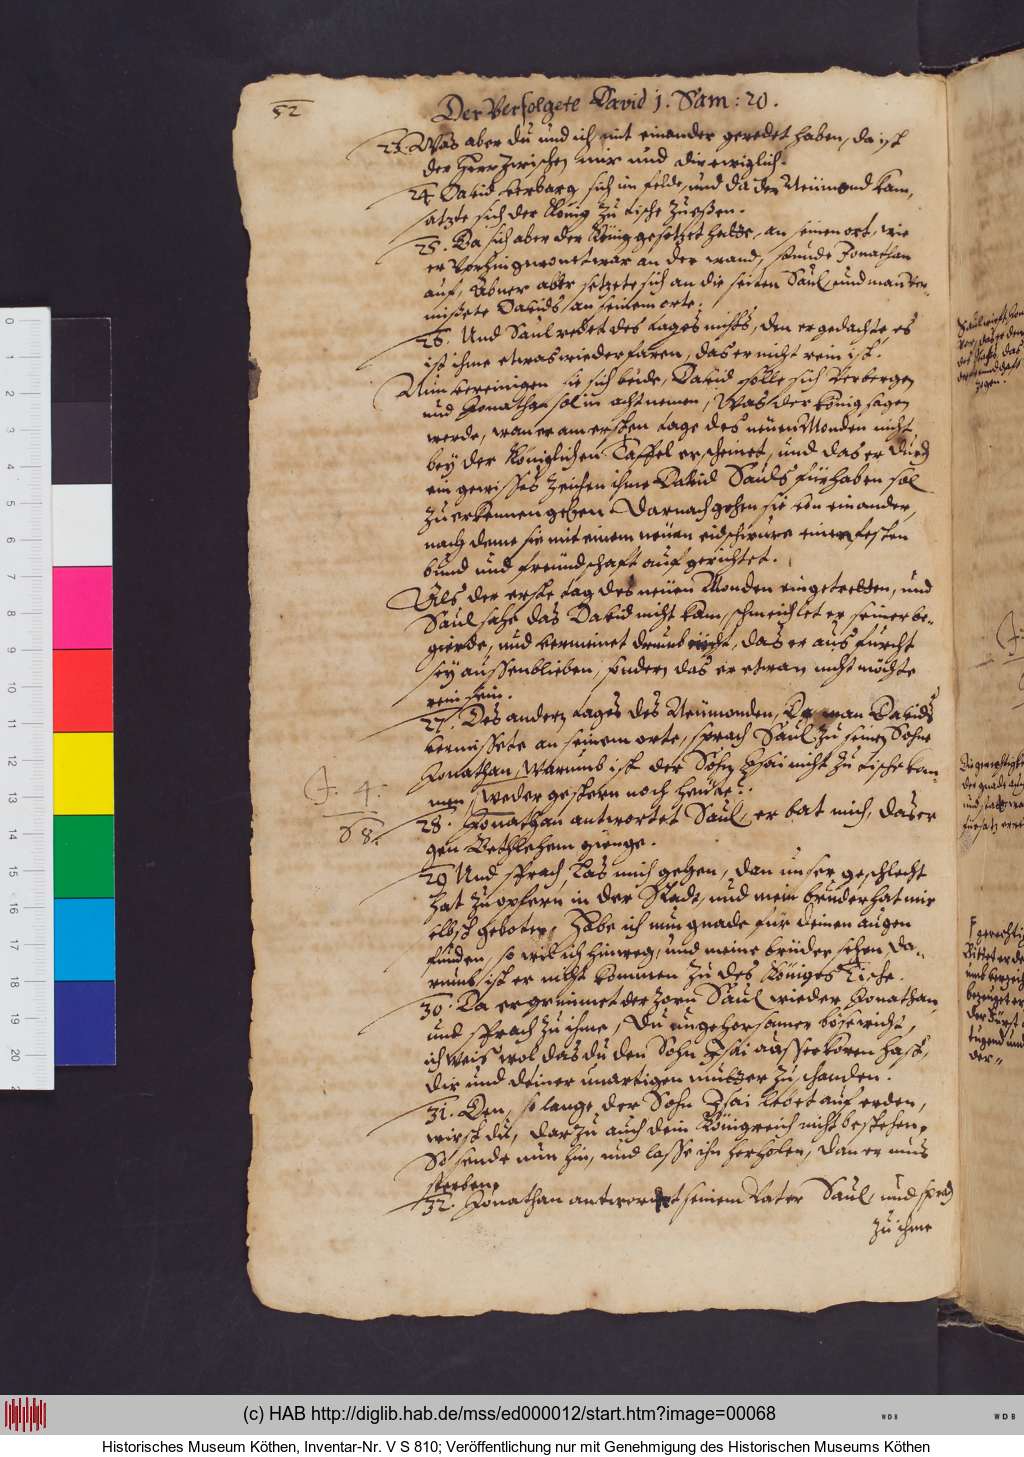 52
Der Verfolgete David 1. Sam: 20.
23. Was aber du und ich mit einander geredet haben, da ist
der Herr zwischen mir und dir ewiglich.
24. David verbarg sich im felde, und da der Neümond kam,
satzte sich der König zu tische zu eßen.
25. Da sich aber der König gesetzet hatte, an seinen ort, wie
er vorhin gewonet war an der wand, stunde Jonathan
auf, Abner aber setzete sich an die seiten Saul, und man ver-
missete Davids an seinem orte.
26. Und Saul redet des tages nichts, den er gedachte, es
ist ihme etwas wiederfaren, das er nicht rein ist.
Nun vereinigen sie sich beide, David solle sich verbergen
und Jonathan sol in acht nemen, Was der König sagen
werde, wan er am ersten tage des neüen Monden nicht
bey der Königlichen Taffel erscheinet, und das er durch
ein gewisses Zeichen ihme David Sauls fürhaben sol
zu erkennen geben. Darnach gehen sie von einander,
nach deme sie mit einem neüen eidschwure einen festen
bund und freündschaft aufgerichtet.
Als der erste tag des neüen Monden eingetretten, und
Saul sahe das David nicht kam, schmeichlet er seiner be-
gierde, und vermeinet drumb nicht, das er aus furcht
sey aussenblieben, sondern das er etwan nicht möchte
rein sein.
27. Des andern tages des Neümonden, Da man Davids
vermissete an seinem orte, sprach Saul zu seinen Sohne
Jonathan, Warumb ist der Sohn Isai nicht zu tische kom-
men, weder gestern noch heüte?
28. Jonathan antwortet Saul, er bat mich, das er
gen Bethlehem gienge.
29. Und sprach, Las mich gehen, dan unser geschlecht
hat zu opfern in der Stadt, und mein bruder hat mirs
selbst geboten, Habe ich nun gnade für deinen augen
funden, so wil ich hinweg, und meine brüder sehen, da-
rumb ist er nicht kommen zu des Königes Tische.
30. Da ergrimmet der zorn Saul wieder Jonathan,
und sprach zu ihme, Du ungehorsamer bösewicht,
ich weis wol das du den Sohn Isai ausserkoren hast,
dir und deiner unartigen mutter zu schanden.
31. Den, so lange der Sohn Isai lebet auf erden,
wirst du, darzu auch dein Königreich nicht bestehen,
So sende nun hin, und lasse ihn herholen, dan er mus
sterben.
32. Jonathan antwortet seinem Vater Saul, und sprach
zu ihme
4.
8.
(c) HAB http://diglib.hab.de/mss/ed000012/start.htm?image=00068
WDB
WDB
Historisches Museum Köthen, Inventar-Nr. V S 810; Veröffentlichung nur mit Genehmigung des Historischen Museums Köthen